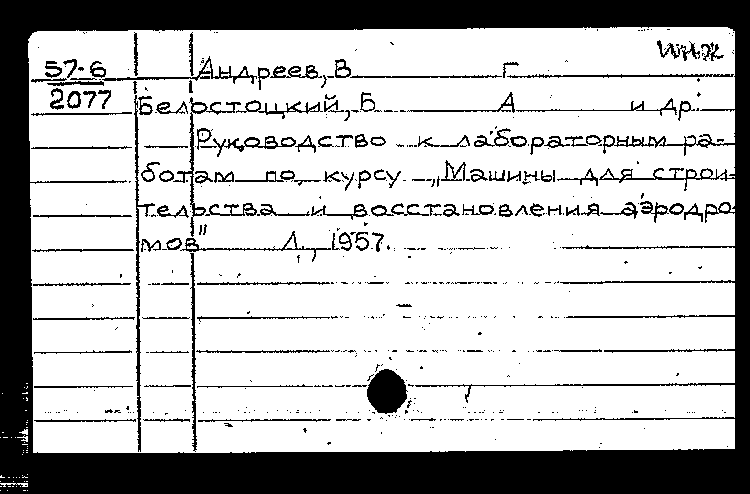 инж
57-6 Андреев, В Г
2077 Белостоцкий, Б А и др.
Руководство к лабораторным ра-
ботам по курсу „Машины для строи-
тельства и восстановления аэродро-
мов" Л., 1957.